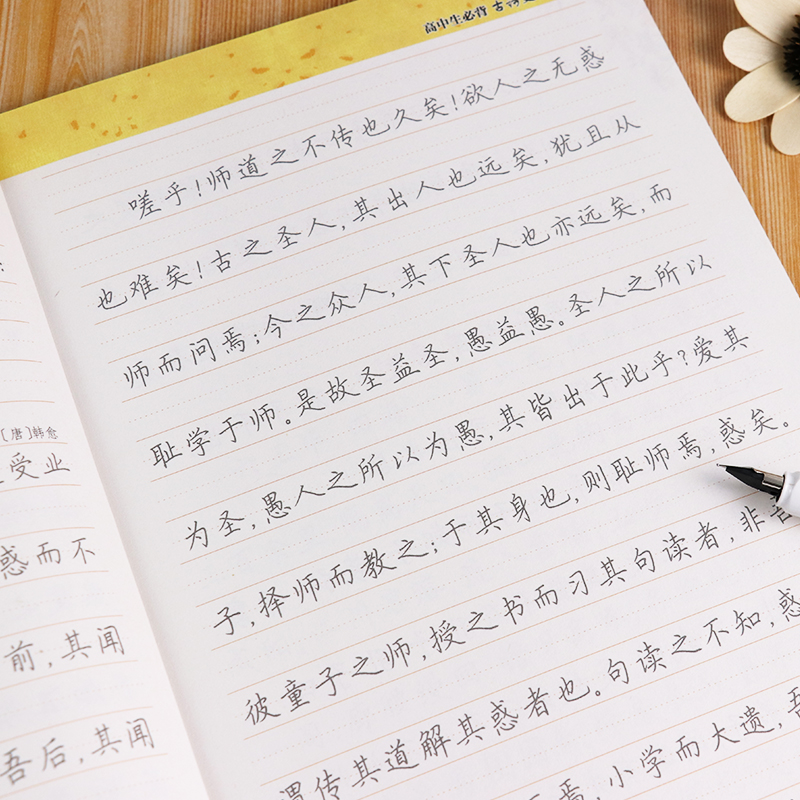 高中生必背古诗
〔唐〕韩愈
受业
惑而不
前;其闻
吾后,其闻
嗟乎!师道之不传也久矣!欲人之无惑
也难矣!古之圣人,其出人也远矣,犹且从
师而问焉;今之众人,其下圣人也亦远矣,而
耻学于师。是故圣益圣,愚益愚。圣人之所以
为圣,愚人之所以为愚,其皆出于此乎?爱其
子,择师而教之;于其身也,则耻师焉,惑矣。
彼童子之师,授之书而习其句读者,非吾
谓传其道解其惑者也。句读之不知,惑
焉,小学而大遗,吾